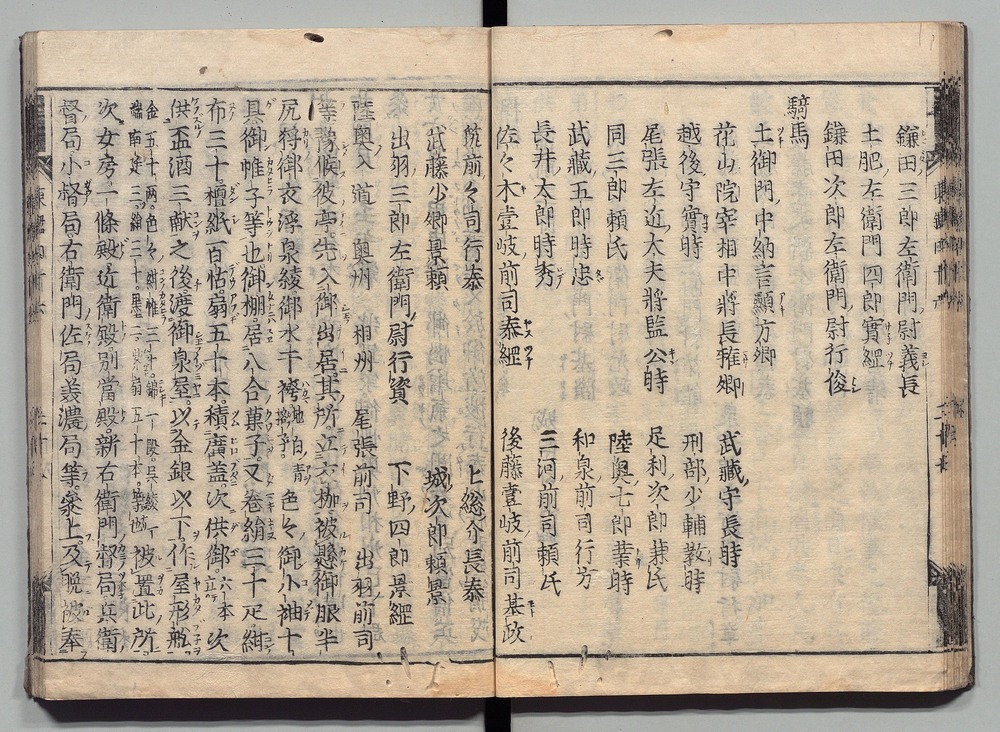 鎌田三郎左衛門尉義長
土肥左衛門四郎實經
鎌田次郎左衛門尉行俊
騎馬
土御門中納言顯方卿
花山院宰相中將長雅卿　武藏守長時
越後守實時　刑部少輔教時
尾張左近大夫將監公時　足利次郎兼氏
同三郎頼氏　陸奥七郎業時
武藏五郎時忠　和泉前司行方
長井太郎時秀　三河前司頼氏
佐々木壹岐前司泰經　後藤壹岐前司基政
筑前々司行泰　上総介長泰
武藤少卿景頼　城次郎頼景
出羽三郎左衛門尉行資　下野四郎景經
陸奥入道　奥州　相州　尾張前司　出羽前司
等豫候彼亭先入御出居其所立六枷被懸御服半
尻狩御衣浮泉綾御水干袴地白青色々御小袖十
具御帷子等也御棚居八合菓子又卷絹三十疋紺
布三十檀紙百帖扇五十本積廣盖次供御六本立次
供盃酒三献之後渡御泉屋以金銀以下作屋形舩
金五十両色々紺帷
南廷三綿三十
五十本
被置此所
次女房一條殿近衛殿別當殿新右衛門督局兵衛
督局小督局右衛門佐局美濃局等參上及晩被奉